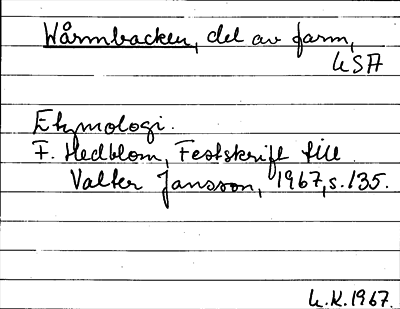 Wårmbacken, del av farm,
USA
Etymologi.
F. Hedblom, Festskrift till
Valter Jansson, 1967, s. 135.
L.K. 1967.